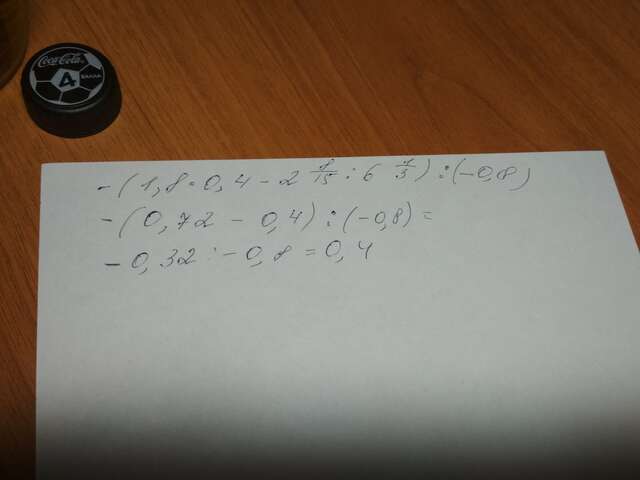 Coca-Cola
4
БАЛЛА
-(1,8·0,4-2 8/15:6 1/3):(-0,8)
-(0,72-0,4):(-0,8)=
-0,32:-0,8=0,4